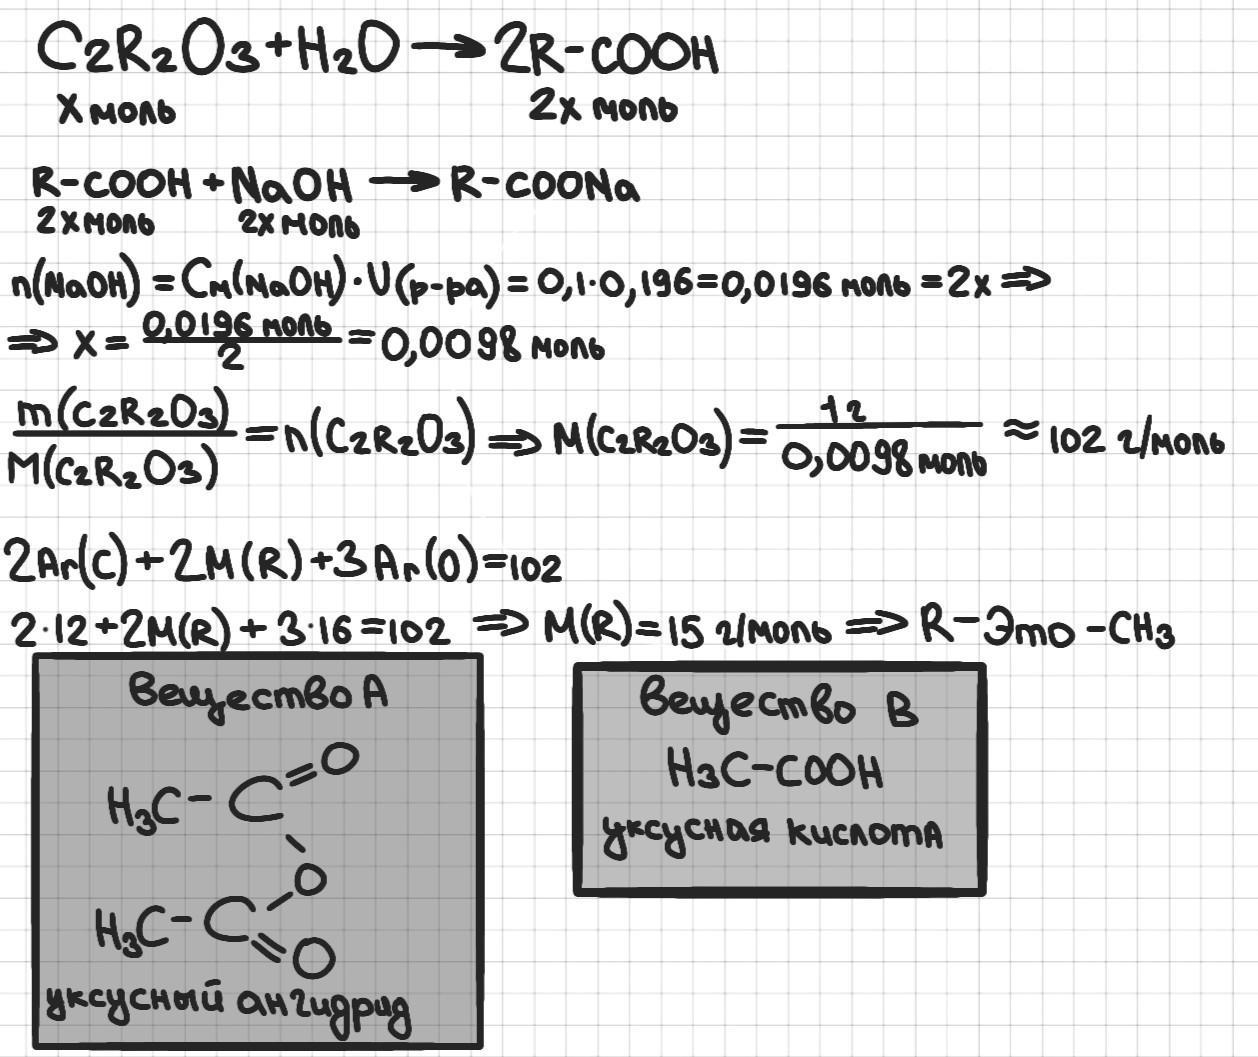 C2R2O3+H2O → 2R-COOH
x моль 2x моль
R-COOH + NaOH → R-COONa
2x моль 2x моль
n(NaOH) = Cм(NaOH)·V(р-ра) = 0,1·0,196=0,0196 моль = 2x ⇒
⇒ x = 0,0196 моль/2 = 0,0098 моль
m(C2R2O3)/M(C2R2O3) = n(C2R2O3) ⇒ M(C2R2O3) = 1г/0,0098 моль ≈ 102 г/моль
2Ar(C)+2M(R)+3Ar(O)=102
2·12+2M(R)+3·16=102 ⇒ M(R)=15 г/моль ⇒ R-Это-CH3
Вещество А
H3C-C=O
O
H3C-C=O
уксусный ангидрид
Вещество В
H3C-COOH
уксусная кислотА